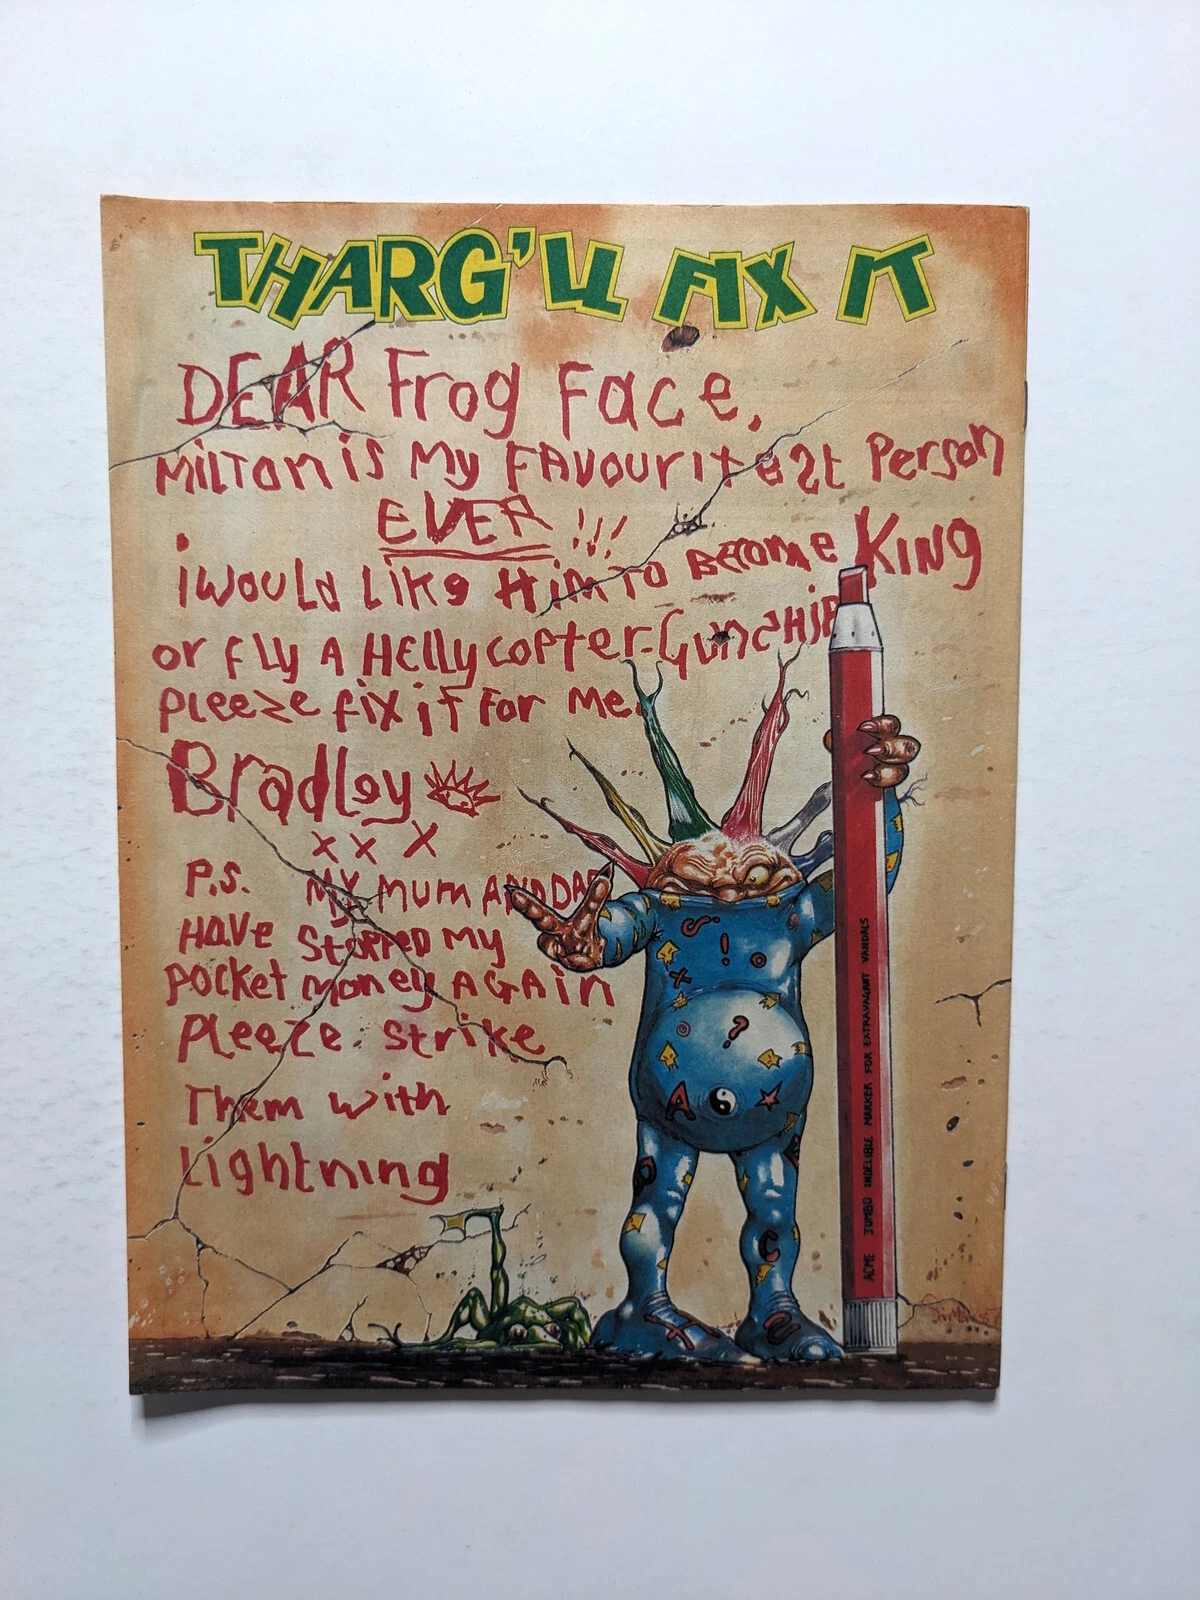 THARG'LL FIX IT
DEAR Frog Face,
MILTON iS My FAVOURITEEST Person
EVER!!!
i WOULD LIKE HIM TO BECOME KING
or FLY A HELLYCOPTER-GUNSHIP
PLEEZE FIX iT For Me.
Bradley
x x x
P.S. MY MUM AND DAD
HAVE STOPPED MY
POCKET MONEY AGAIN
PLEEZE STRIKE
Them with
Lightning
ACME JUMBO INDELIBLE MARKER FOR EXTRAVAGANT VANDALS